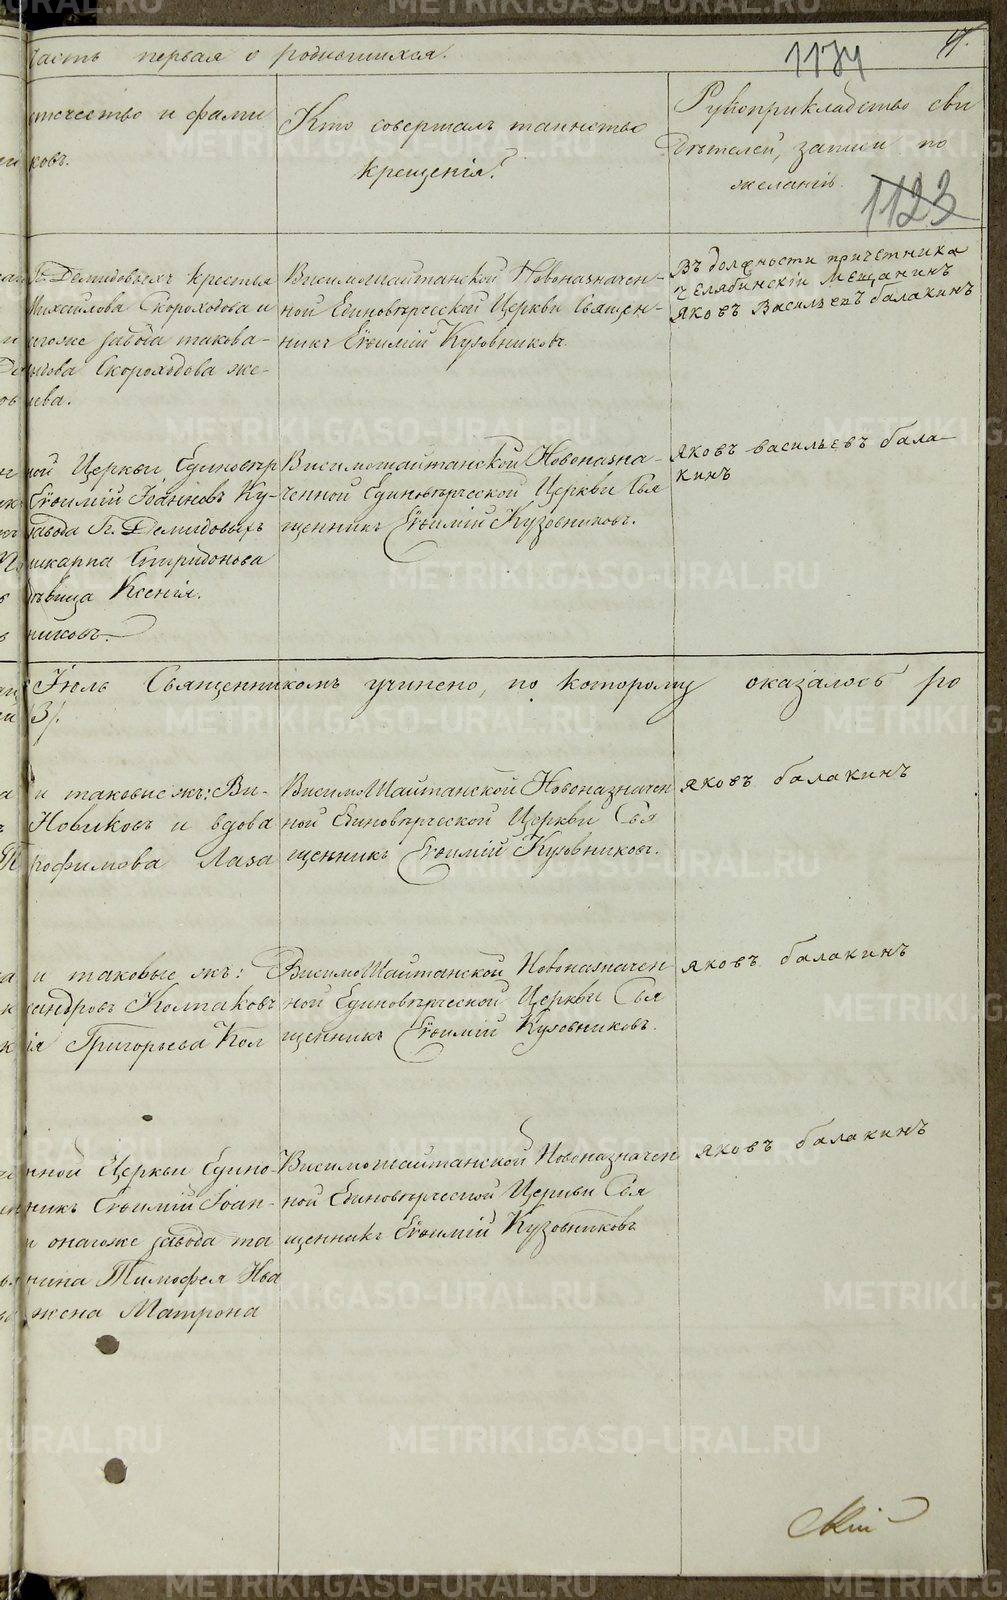 Часть первая о родившихся.
1174
4.
отчество и фами
ковъ.
Кто совершалъ таинство
крещенія?
Рукоприкладство сви
дѣтелей, записи по
желанію.
1123
Гг. Демидовыхъ крестья
Михайлова Скороходова и
тогоже завода такова-
Скороходова же-
Висимошайтанской Новоназначен-
ной Единовѣрческой Церкви Священ-
никъ Евѳимій Кузовниковъ
Въ должности причетника
Челябинскій Мещанинъ
Яковъ Васильевъ балакинъ
ной Церкви Единовѣр
Евѳимій Іоанновъ Ку-
завода Гг. Демидовыхъ
Поликарпа Спиридонова
дѣвица Ксенія.
никовъ.
Висимошайтанской Новоназна-
ченной Единовѣрческой Церкви Свя
щенникъ Евѳимій Кузовниковъ.
яковъ васильевъ бала-
кинъ
Іюль Священникомъ учинено, по которому оказалось ро
3/.
и таковые жъ: Ви-
Новиковъ и вдова
Трофимова Лаза
ВисимоШайтанской Новоназначен
ной Единовѣрческой Церкви Свя
щенникъ Евѳимій Кузовниковъ.
яковъ балакинъ
и таковые жъ:
сандровъ Колпаковъ
Григорьева Кол
ВисимоШайтанской Новоназначен
ной Единовѣрческой Церкви Свя
щенникъ Евѳимій Кузовниковъ.
яковъ балакинъ
нной Церкви Едино-
никъ Евѳимій Іоан-
и онагоже завода та
нина Тимофея Ива
жена Матрона
Висимошайтанской Новоназначен
ной Единовѣрческой Церкви Свя
щенникъ Евѳимій Кузовниковъ
яковъ балакинъ
METRIKI.GASO-URAL.RU